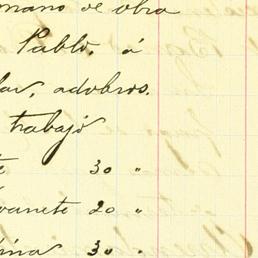 mano de obra
Pablo, á
lar, adobros.
trabajó
te 30 "
vanete 20 "
ina 30 "